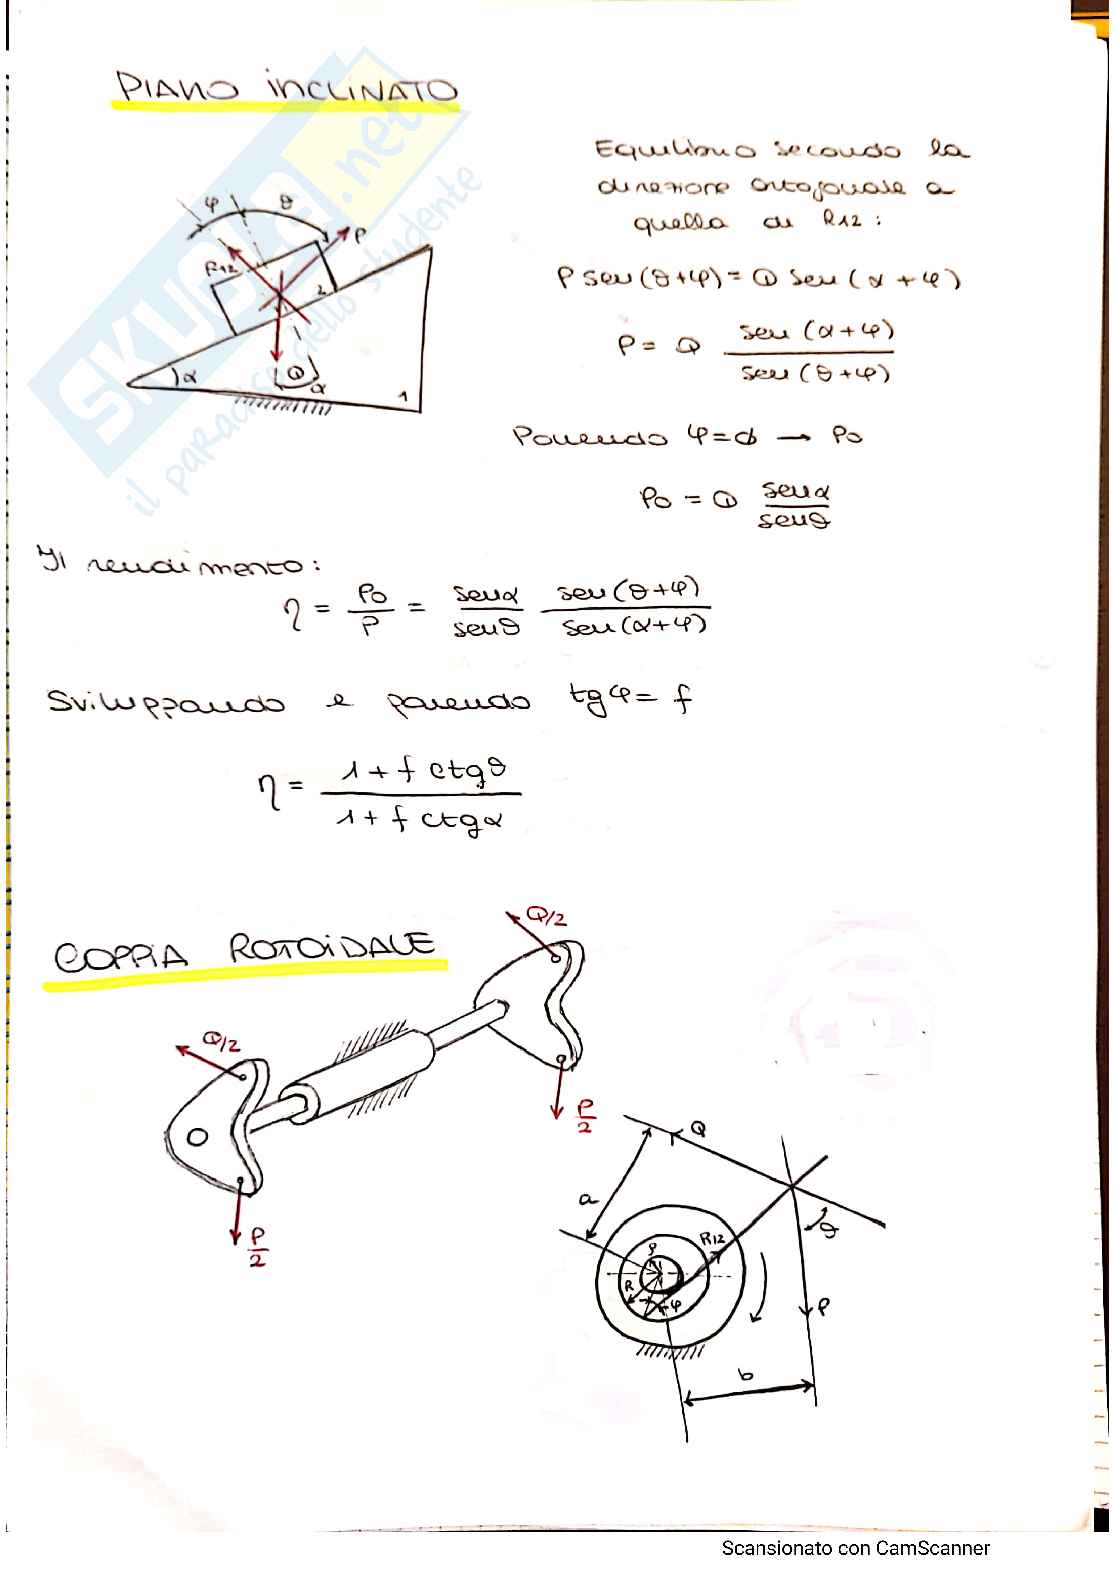 PIANO INCLINATO
SKUOLA.net
il paradiso dello studente
φ θ
P
R12
2
α
Q
α
1
Equilibrio secondo la
direzione ortogonale a
quella di R12 :
P sen(θ+φ) = Q sen(α+φ)
P = Q sen(α+φ) / sen(θ+φ)
Ponendo φ=0 → P0
P0 = Q senα / senθ
Il rendimento:
η = P0/P = senα/senθ sen(θ+φ)/sen(α+φ)
Sviluppando e ponendo tgφ = f
η = 1 + f ctgθ / 1 + f ctgα
COPPIA ROTOIDALE
Q/2
Q/2
P/2
P/2
Q
a
θ
R12
ρ
R
φ
P
b
Scansionato con CamScanner